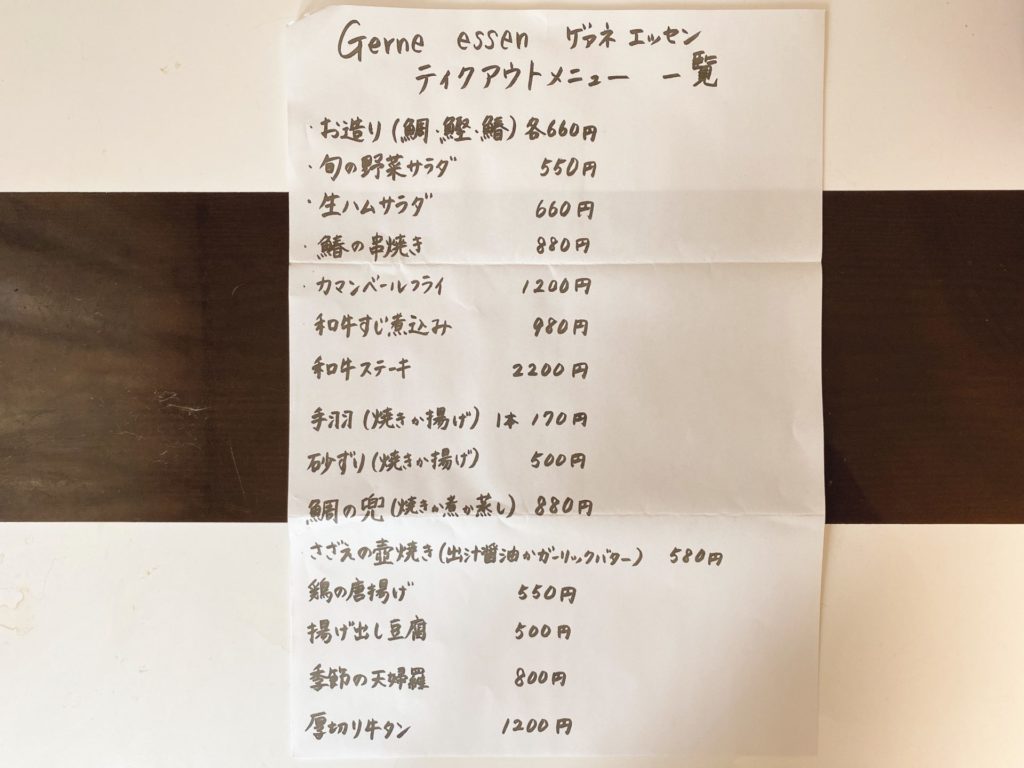 Gerne essen ゲァネ エッセン
ティクアウトメニュー 一覧
・お造り(鯛・鰹・鰆)各660円
・旬の野菜サラダ 550円
・生ハムサラダ 660円
・鰆の串焼き 880円
・カマンベールフライ 1200円
和牛すじ煮込み 980円
和牛ステーキ 2200円
手羽(焼きか揚げ) 1本 170円
砂ずり(焼きか揚げ) 500円
鯛の兜(焼きか煮か蒸し) 880円
さざえの壺焼き(出汁醤油かガーリックバター) 580円
鶏の唐揚げ 550円
揚げ出し豆腐 500円
季節の天婦羅 800円
厚切り牛タン 1200円